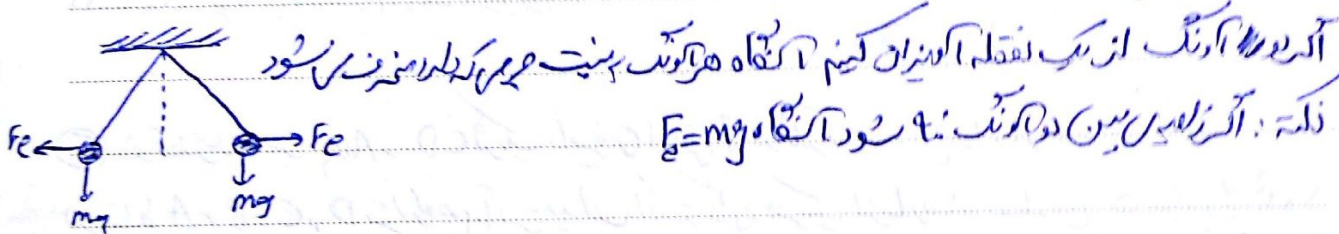 اگر دو آونگ از یک نقطه آویزان کنیم آنگاه هر آونگ نسبت جرمی که دارد منحرف می شود
نکته: اگر زاویه ی بین دو آونگ ۹۰ شود آنگاه Fe=mg
Fe Fe
mg mg